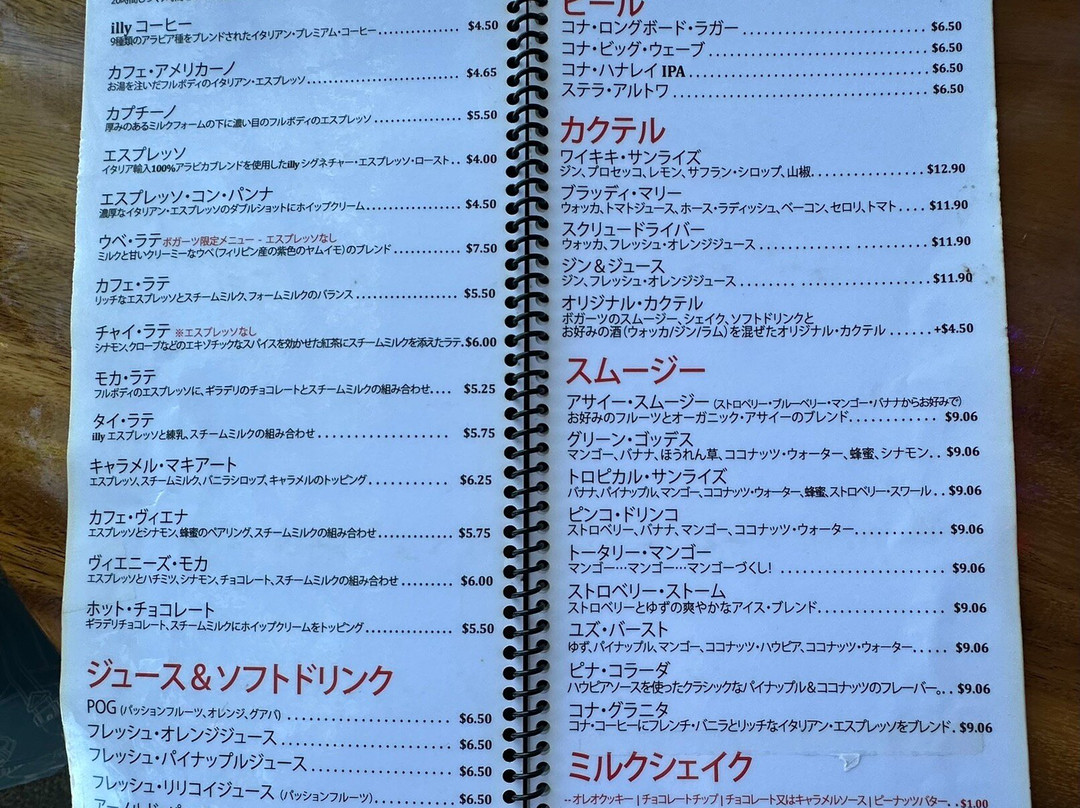 illy コーヒー
9種類のアラビア種をブレンドされたイタリアン・プレミアム・コーヒー.............. $4.50
カフェ・アメリカーノ
お湯を注いだフルボディのイタリアン・エスプレッソ.......................... $4.65
カプチーノ
厚みのあるミルクフォームの下に濃い目のフルボディのエスプレッソ............... $5.50
エスプレッソ
イタリア輸入100%アラビカブレンドを使用したilly シグネチャー・エスプレッソ・ロースト.. $4.00
エスプレッソ・コン・パンナ
濃厚なイタリアン・エスプレッソのダブルショットにホイップクリーム................. $4.50
ウベ・ラテ ボガーツ限定メニュー - エスプレッソなし
ミルクと甘いクリーミーなウベ(フィリピン産の紫色のヤムイモ)のブレンド............. $7.50
カフェ・ラテ
リッチなエスプレッソとスチームミルク、フォームミルクのバランス.................. $5.50
チャイ・ラテ ※エスプレッソなし
シナモン、クローブなどのエキゾチックなスパイスを効かせた紅茶にスチームミルクを添えたラテ. $6.00
モカ・ラテ
フルボディのエスプレッソに、ギラデリのチョコレートとスチームミルクの組み合わせ.... $5.25
タイ・ラテ
illy エスプレッソと練乳、スチームミルクの組み合わせ...................... $5.75
キャラメル・マキアート
エスプレッソ、スチームミルク、バニラシロップ、キャラメルのトッピング............... $6.25
カフェ・ヴィエナ
エスプレッソとシナモン、蜂蜜のペアリング、スチームミルクの組み合わせ............. $5.75
ヴィエニーズ・モカ
エスプレッソとハチミツ、シナモン、チョコレート、スチームミルクの組み合わせ......... $6.00
ホット・チョコレート
ギラデリチョコレート、スチームミルクにホイップクリームをトッピング............... $5.50
ジュース＆ソフトドリンク
POG (パッションフルーツ、オレンジ、グアバ) ............................ $6.50
フレッシュ・オレンジジュース ............................ $6.50
フレッシュ・パイナップルジュース ........................ $6.50
フレッシュ・リリコイジュース (パッションフルーツ)................ $6.50
ビール
コナ・ロングボード・ラガー ............................ $6.50
コナ・ビッグ・ウェーブ ................................. $6.50
コナ・ハナレイ IPA .................................... $6.50
ステラ・アルトワ ....................................... $6.50
カクテル
ワイキキ・サンライズ
ジン、プロセッコ、レモン、サフラン・シロップ、山椒................. $12.90
ブラッディ・マリー
ウォッカ、トマトジュース、ホース・ラディッシュ、ベーコン、セロリ、トマト.... $11.90
スクリュードライバー
ウォッカ、フレッシュ・オレンジジュース .......................... $11.90
ジン＆ジュース
ジン、フレッシュ・オレンジジュース ............................ $11.90
オリジナル・カクテル
ボガーツのスムージー、シェイク、ソフトドリンクと
お好みの酒(ウォッカ/ジン/ラム)を混ぜたオリジナル・カクテル ...... +$4.50
スムージー
アサイー・スムージー (ストロベリー・ブルーベリー・マンゴー・バナナからお好みで)
お好みのフルーツとオーガニック・アサイーのブレンド............. $9.06
グリーン・ゴッデス
マンゴー、バナナ、ほうれん草、ココナッツ・ウォーター、蜂蜜、シナモン.. $9.06
トロピカル・サンライズ
バナナ、パイナップル、マンゴー、ココナッツ・ウォーター、蜂蜜、ストロベリー・スワール.. $9.06
ピンコ・ドリンコ
ストロベリー、バナナ、マンゴー、ココナッツ・ウォーター............. $9.06
トータリー・マンゴー
マンゴー…マンゴー…マンゴーづくし! ........................ $9.06
ストロベリー・ストーム
ストロベリーとゆずの爽やかなアイス・ブレンド.................. $9.06
ユズ・バースト
ゆず、パイナップル、マンゴー、ココナッツ・ハウピア、ココナッツ・ウォーター..... $9.06
ピナ・コラーダ
ハウピアソースを使ったクラシックなパイナップル＆ココナッツのフレーバー。.. $9.06
コナ・グラニタ
コナ・コーヒーにフレンチ・バニラとリッチなイタリアン・エスプレッソをブレンド. $9.06
ミルクシェイク
-- オレオクッキー | チョコレートチップ | チョコレート又はキャラメルソース | ピーナッツバター.. $1.00